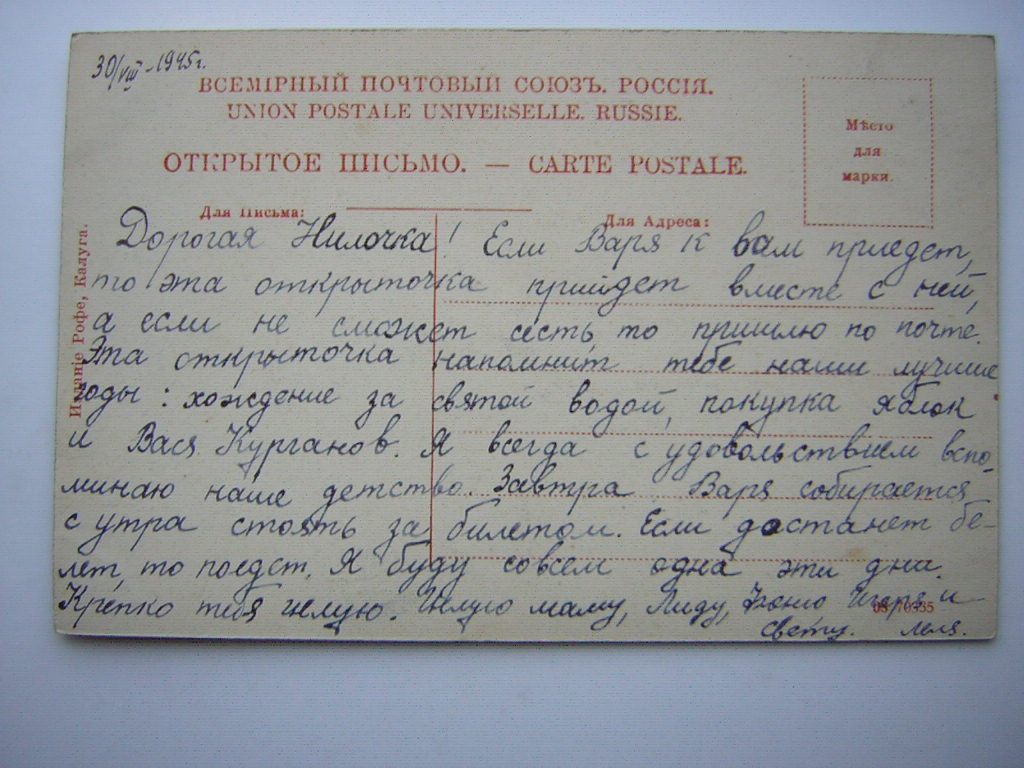 30/VIII-1945г.
ВСЕМІРНЫЙ ПОЧТОВЫЙ СОЮЗЪ. РОССІЯ.
UNION POSTALE UNIVERSELLE. RUSSIE.
ОТКРЫТОЕ ПИСЬМО. — CARTE POSTALE.
Мѣсто
для
марки.
Для Письма:
Для Адреса:
Изданіе Рофе, Калуга.
Дорогая Нилочка! Если Варя к вам приедет,
то эта открыточка прийдет вместе с ней,
а если не сможет сесть, то пришлю по почте.
Эта открыточка напомнит тебе наши лучшие
годы: хождение за святой водой, покупка яблок
и Вася Курганов. Я всегда с удовольствием вспо-
минаю наше детство. Завтра Варя собирается
с утра стоять за билетом. Если достанет бе-
лет, то поедет. Я буду совсем одна эти дни.
Крепко тебя целую. Целую маму, Лиду, Игоря и
Свету. Леля.